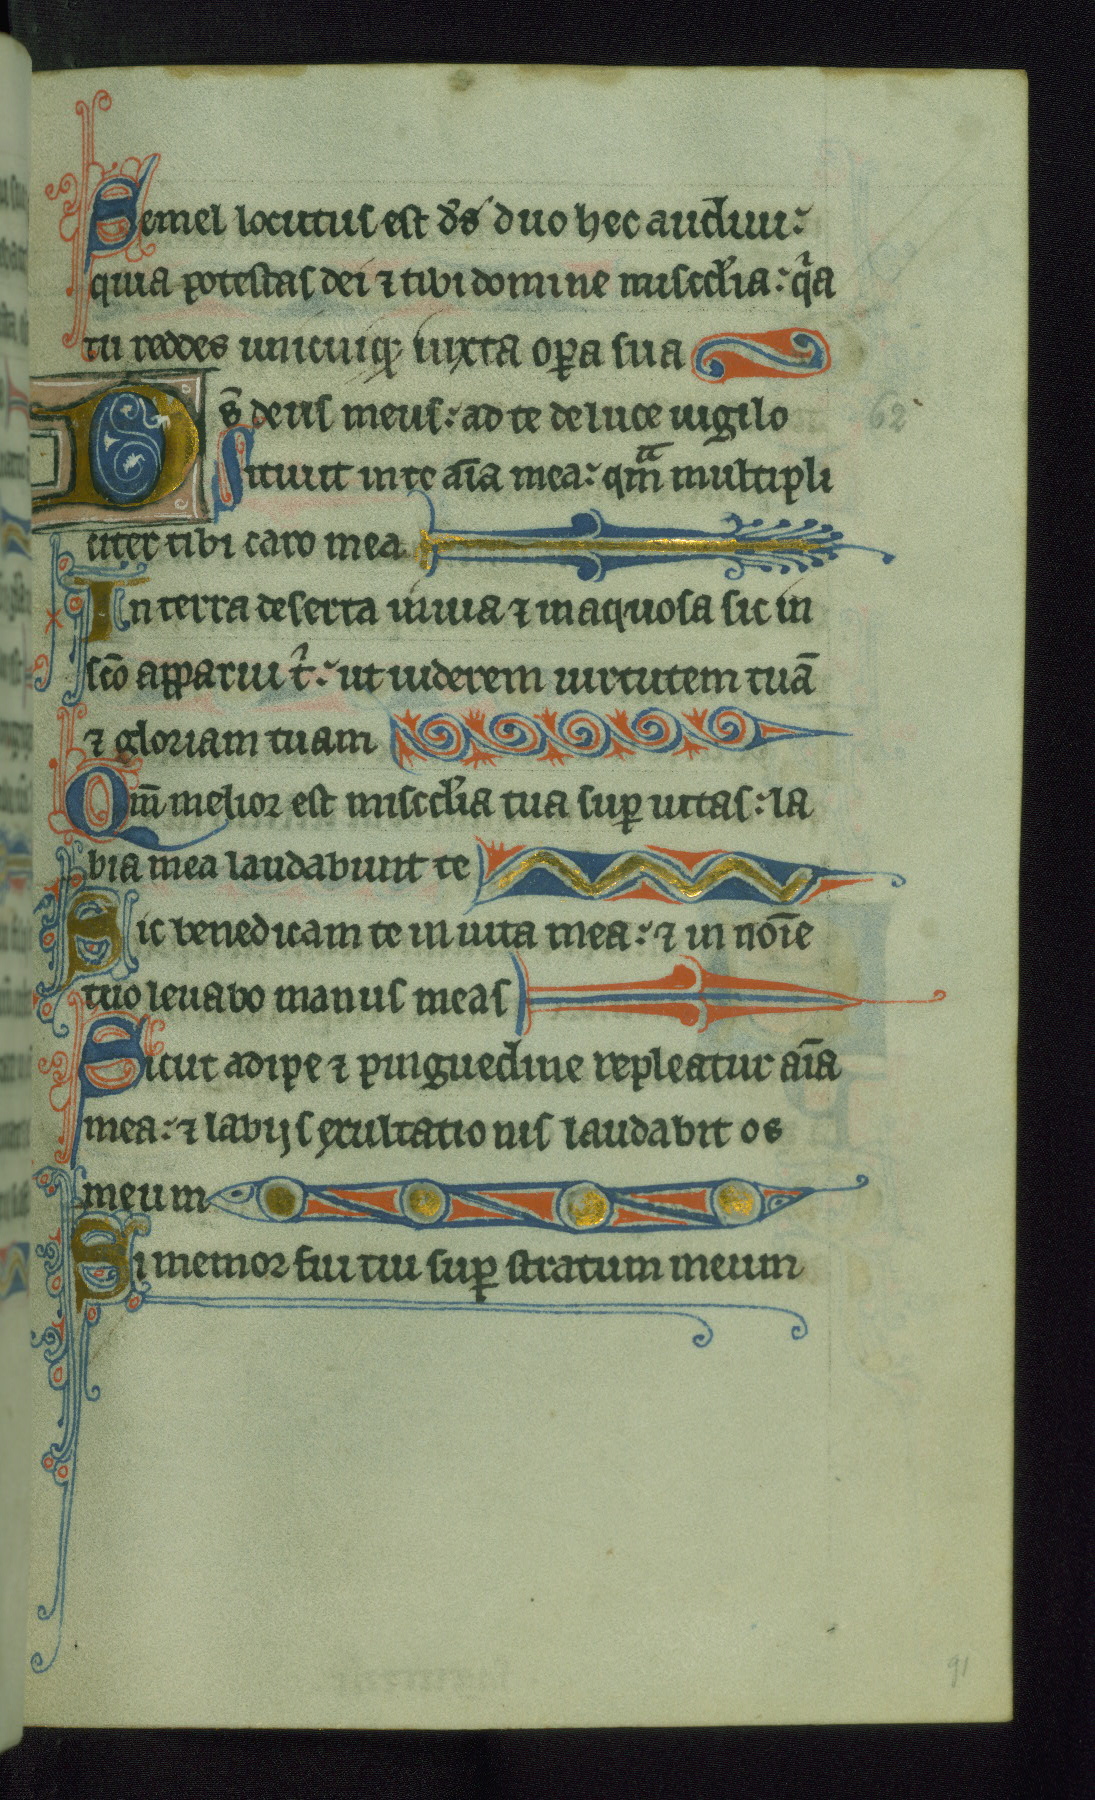 Semel locutus est d̄s duo hec audiui:
quia potestas dei ⁊ tibi domine misc̄dia: qͥa
tu reddes unicuiqꝫ iuxta oꝑa sua
Ds̄ deus meus: ad te de luce uigilo
62
Sitiuit in te aīa mea: qm̄ multipli
citer tibi caro mea
In terra deserta inuia ⁊ inaquosa sic in
sc̄o apparui t̾: ut uiderem uirtutem tuā
⁊ gloriam tuam
Qm̄ melior est misc̄dia tua suꝑ uitas: la
bia mea laudabunt te
Sic benedicam te in uita mea: ⁊ in noīe
tuo leuabo manus meas
Sicut adipe ⁊ pinguedine repleatur aīa
mea: ⁊ labijs exultationis laudabit os
meum
Si memor fui tui suꝑ stratum meum
91